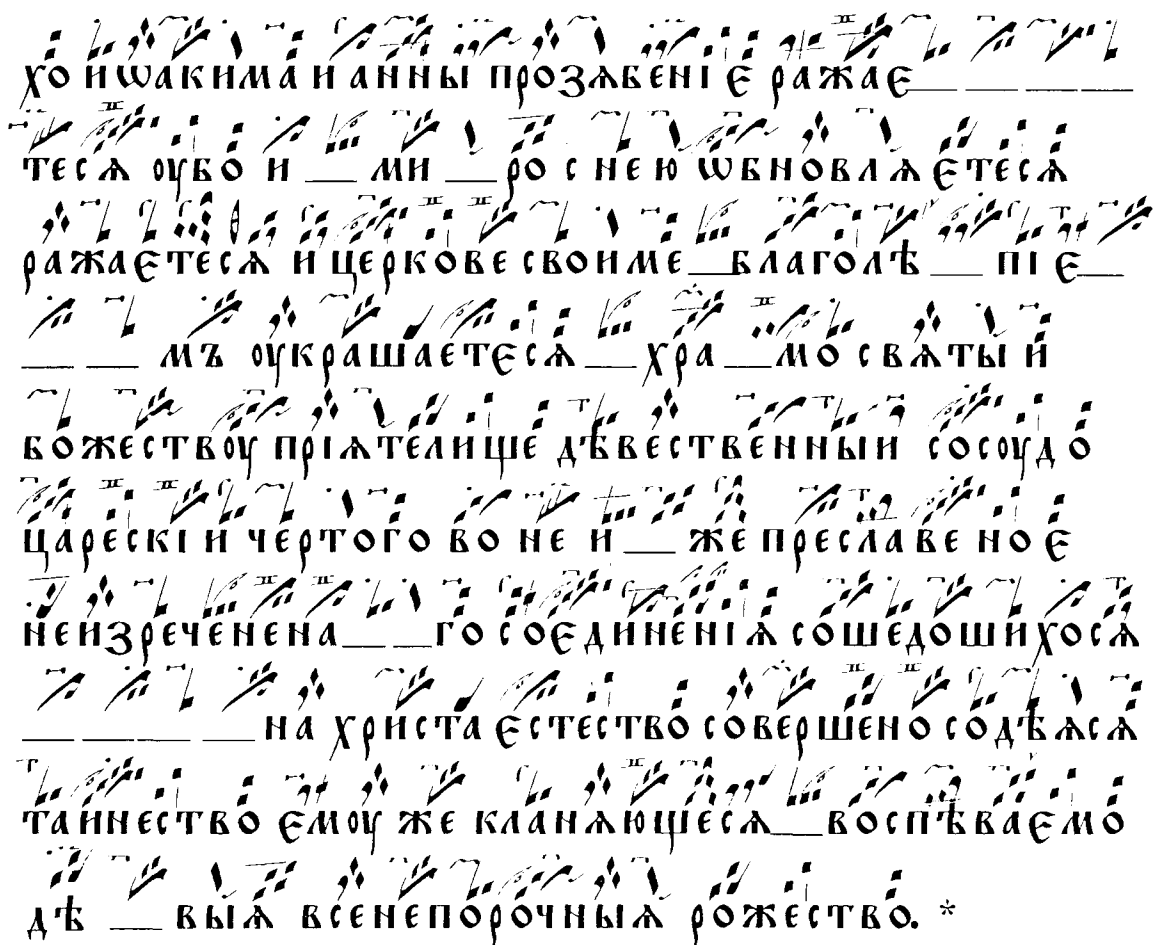 ХО И ѠАКИМА И АННЫ ПРОЗѦБЕНІ Є РАЖАЄ__ __ __ __
ТЕСѦ ОУБО И __ МИ __РО С НЕЮ ѠБНОВЛѦЄТЕСѦ
РАЖАЄТЕСѦ И ЦЕРКОВЕ СВОИМЕ__БЛАГОЛѢ __ ПІ Є__
__ __ МЪ ОУКРАШАЕТЄСѦ__ХРА__МО СВѦТЫ И
БОЖЕСТВОУ ПРІѦТЕЛИЩЕ ДѢВЕСТВЕННЫИ СОСОУДО
ЦАРЕСКІ И ЧЕРТОГО ВО НЕ И __ ЖЕ ПРЕСЛАВЕ НО Є
НЕИЗРЕЧЕНЕНА__ __ГО СОЄДИНЕНІѦ СОШЕДОШИХОСѦ
__ __ __ __НА ХРИСТА ЄСТЕСТВО СОВЕРШЕНО СОДѢѦСѦ
ТАИНЕСТВО ЄМОУ ЖЕ КЛАНѦЮЩЕСѦ__ВОСПѢВАЄМО
ДѢ __ ВЫѦ ВСЕНЕПОРОЧНЫѦ РОЖЕСТВО. *